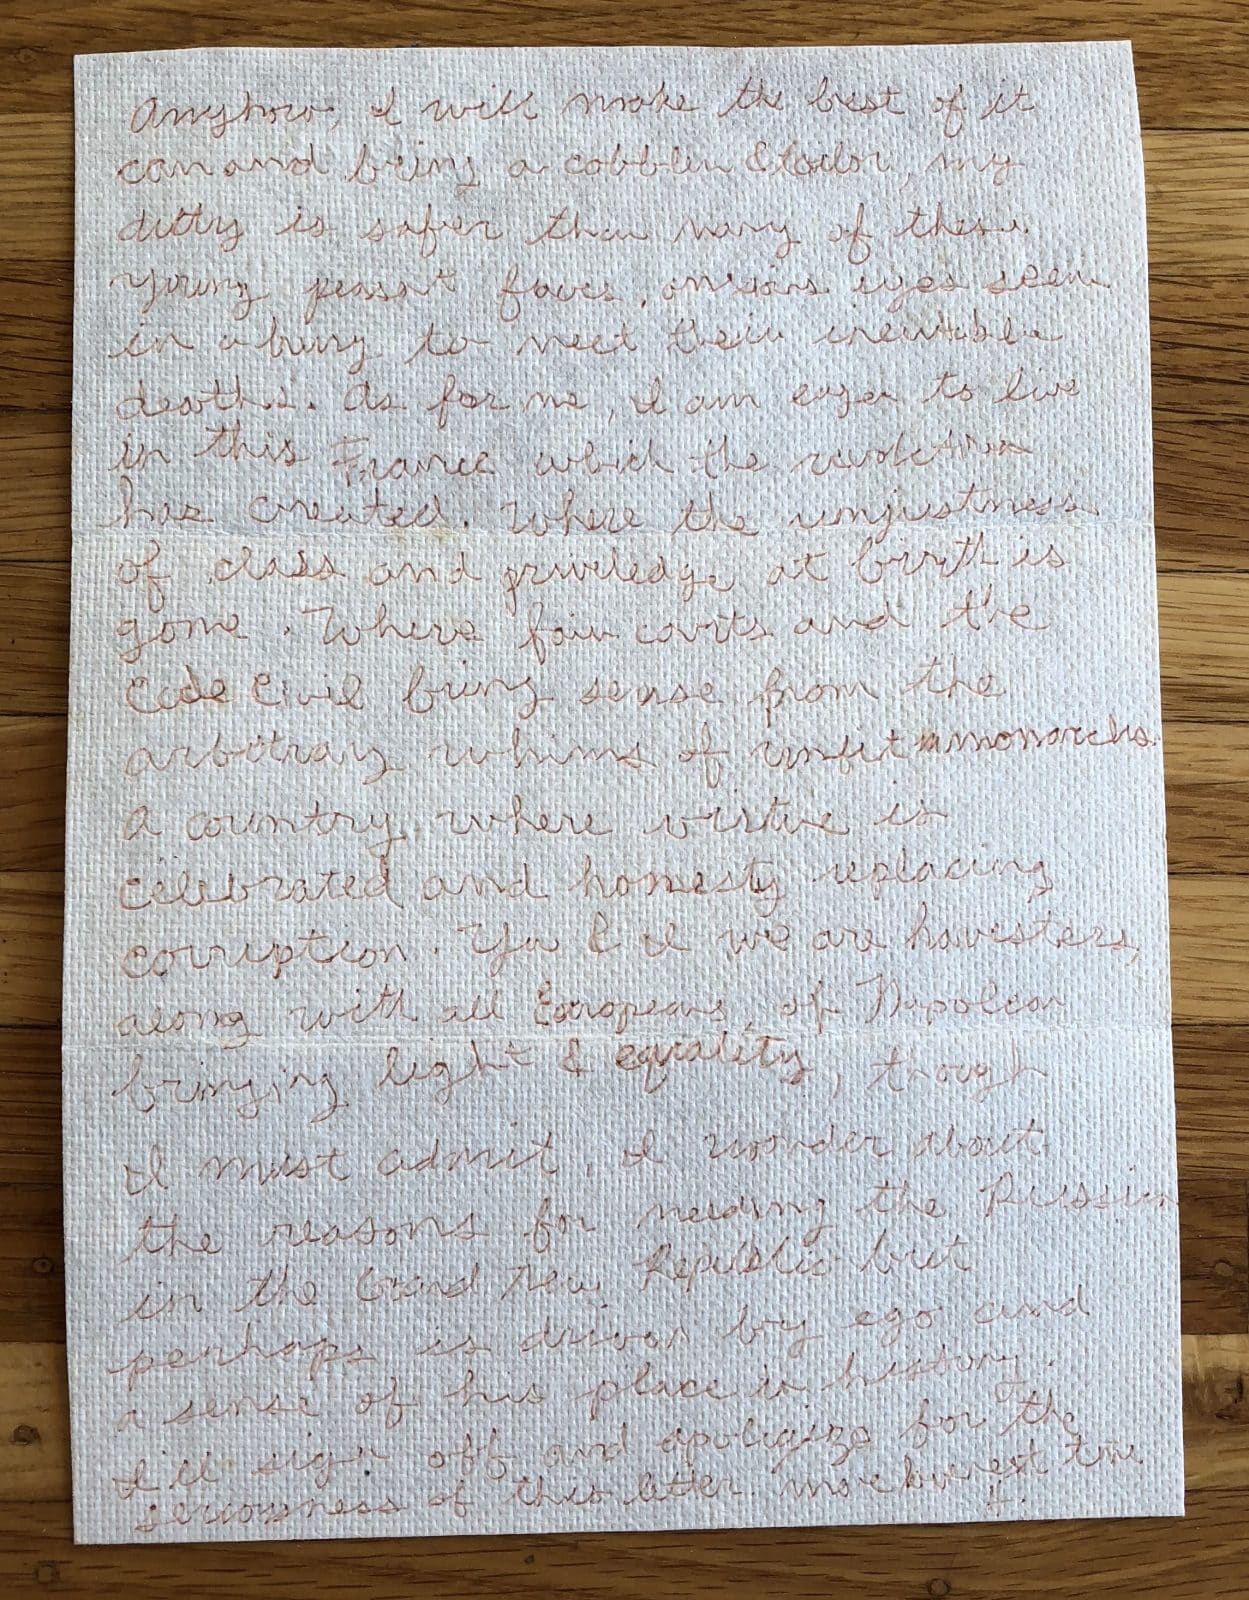 Anyhow, I will make the best of it
can and being a cobbler & tailor, my
dutty is safer than many of these.
Young peasant faces, anxious eyes seem
in a hurry to meet their inevitable
deaths. As for me, I am eager to live
in this France which the revolution
has created. Where the unjustness
of class and priviledge at birth is
gone. Where fair courts and the
Code Civil bring sense from the
arbitrary whims of unfit monarchs.
A country where virtue is
celebrated and honesty replacing
corruption. You & I we are havesters,
along with all Europeans, of Napoleon
bringing light & equality, though
I must admit, I wonder about
the reasons for needing the Russian
in the Grand New Republic but
perhaps is driven by ego and
a sense of his place in history.
I'll sign off and apoligize for the
seriousness of this letter. more next time
H.